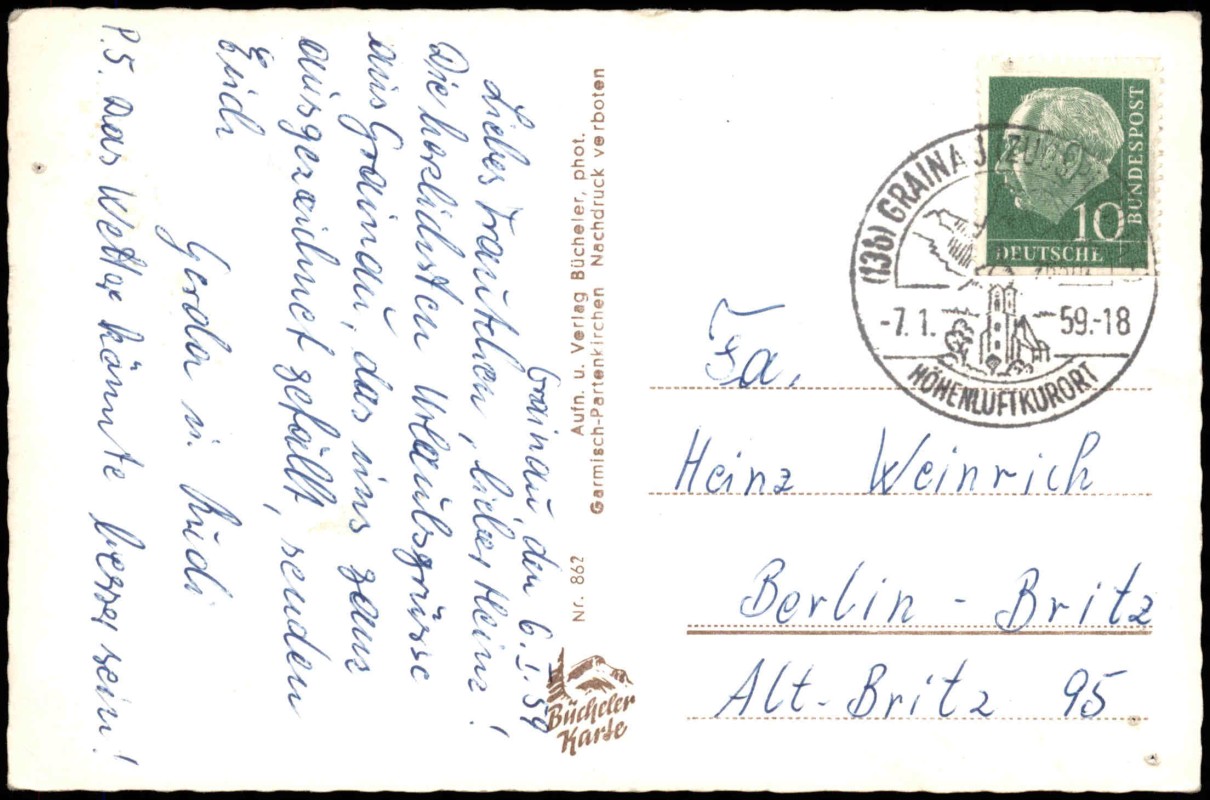 Grainau, den 6.I.59
Liebes Trautchen, lieber Heinz!
Die herzlichsten Urlaubsgrüsse
aus Grainau, das uns ganz
ausgezeichnet gefällt, senden
Euch
Gerda u. Rudi
P.S. Das Wetter könnte besser sein!
Aufn. u. Verlag Bücheler, phot.
Garmisch-Partenkirchen Nachdruck verboten
Nr. 862
Bücheler
Karte
10
DEUTSCHE
BUNDESPOST
(13b) GRAINAU
-7.1.59.-18
HÖHENLUFTKURORT
Fa.
Heinz Weinrich
Berlin - Britz
Alt-Britz 95